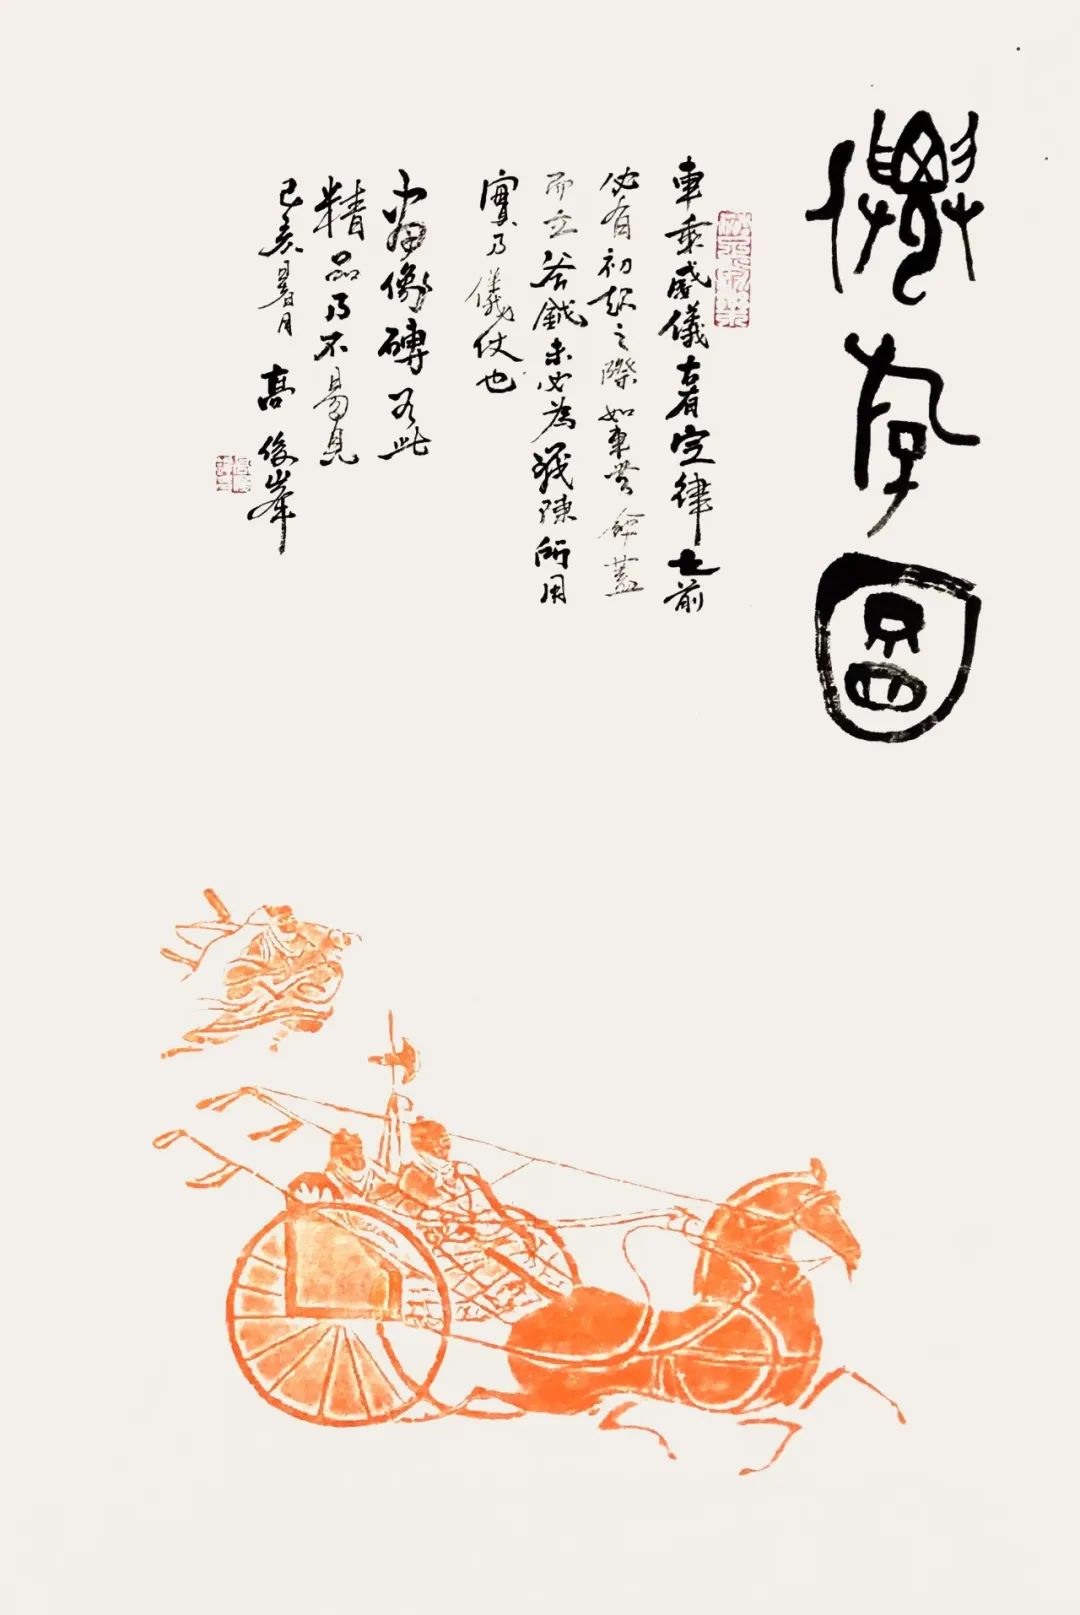 圖
車乘威儀古有定律之前
必有初起之際如車無傘蓋
而立斧鉞未必為戰陳所用
實乃儀仗也
小畫像磚此
精品乃不易見
己亥暑月 高俊峯